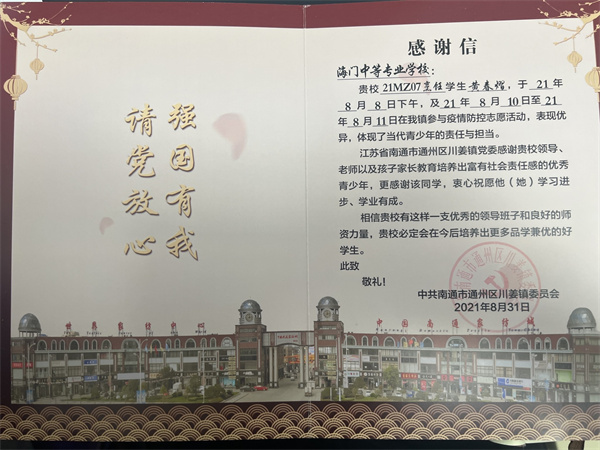 请党放心
强国有我
感谢信
海门中等专业学校：
贵校 21MZ07烹饪 学生 黄春熠，于 21 年
8 月 8 日下午，及 21 年 8 月 10 日至 21
年 8 月 11 日在我镇参与疫情防控志愿活动，表现优
异，体现了当代青少年的责任与担当。
江苏省南通市通州区川姜镇党委感谢贵校领导、
老师以及孩子家长教育培养出富有社会责任感的优秀
青少年，更感谢该同学，衷心祝愿他（她）学习进
步、学业有成。
相信贵校有这样一支优秀的领导班子和良好的师
资力量，贵校必定会在今后培养出更多品学兼优的好
学生。
此致
敬礼！
中共南通市通州区川姜镇委员会
2021年8月31日
世界家纺中心
中国南通家纺城